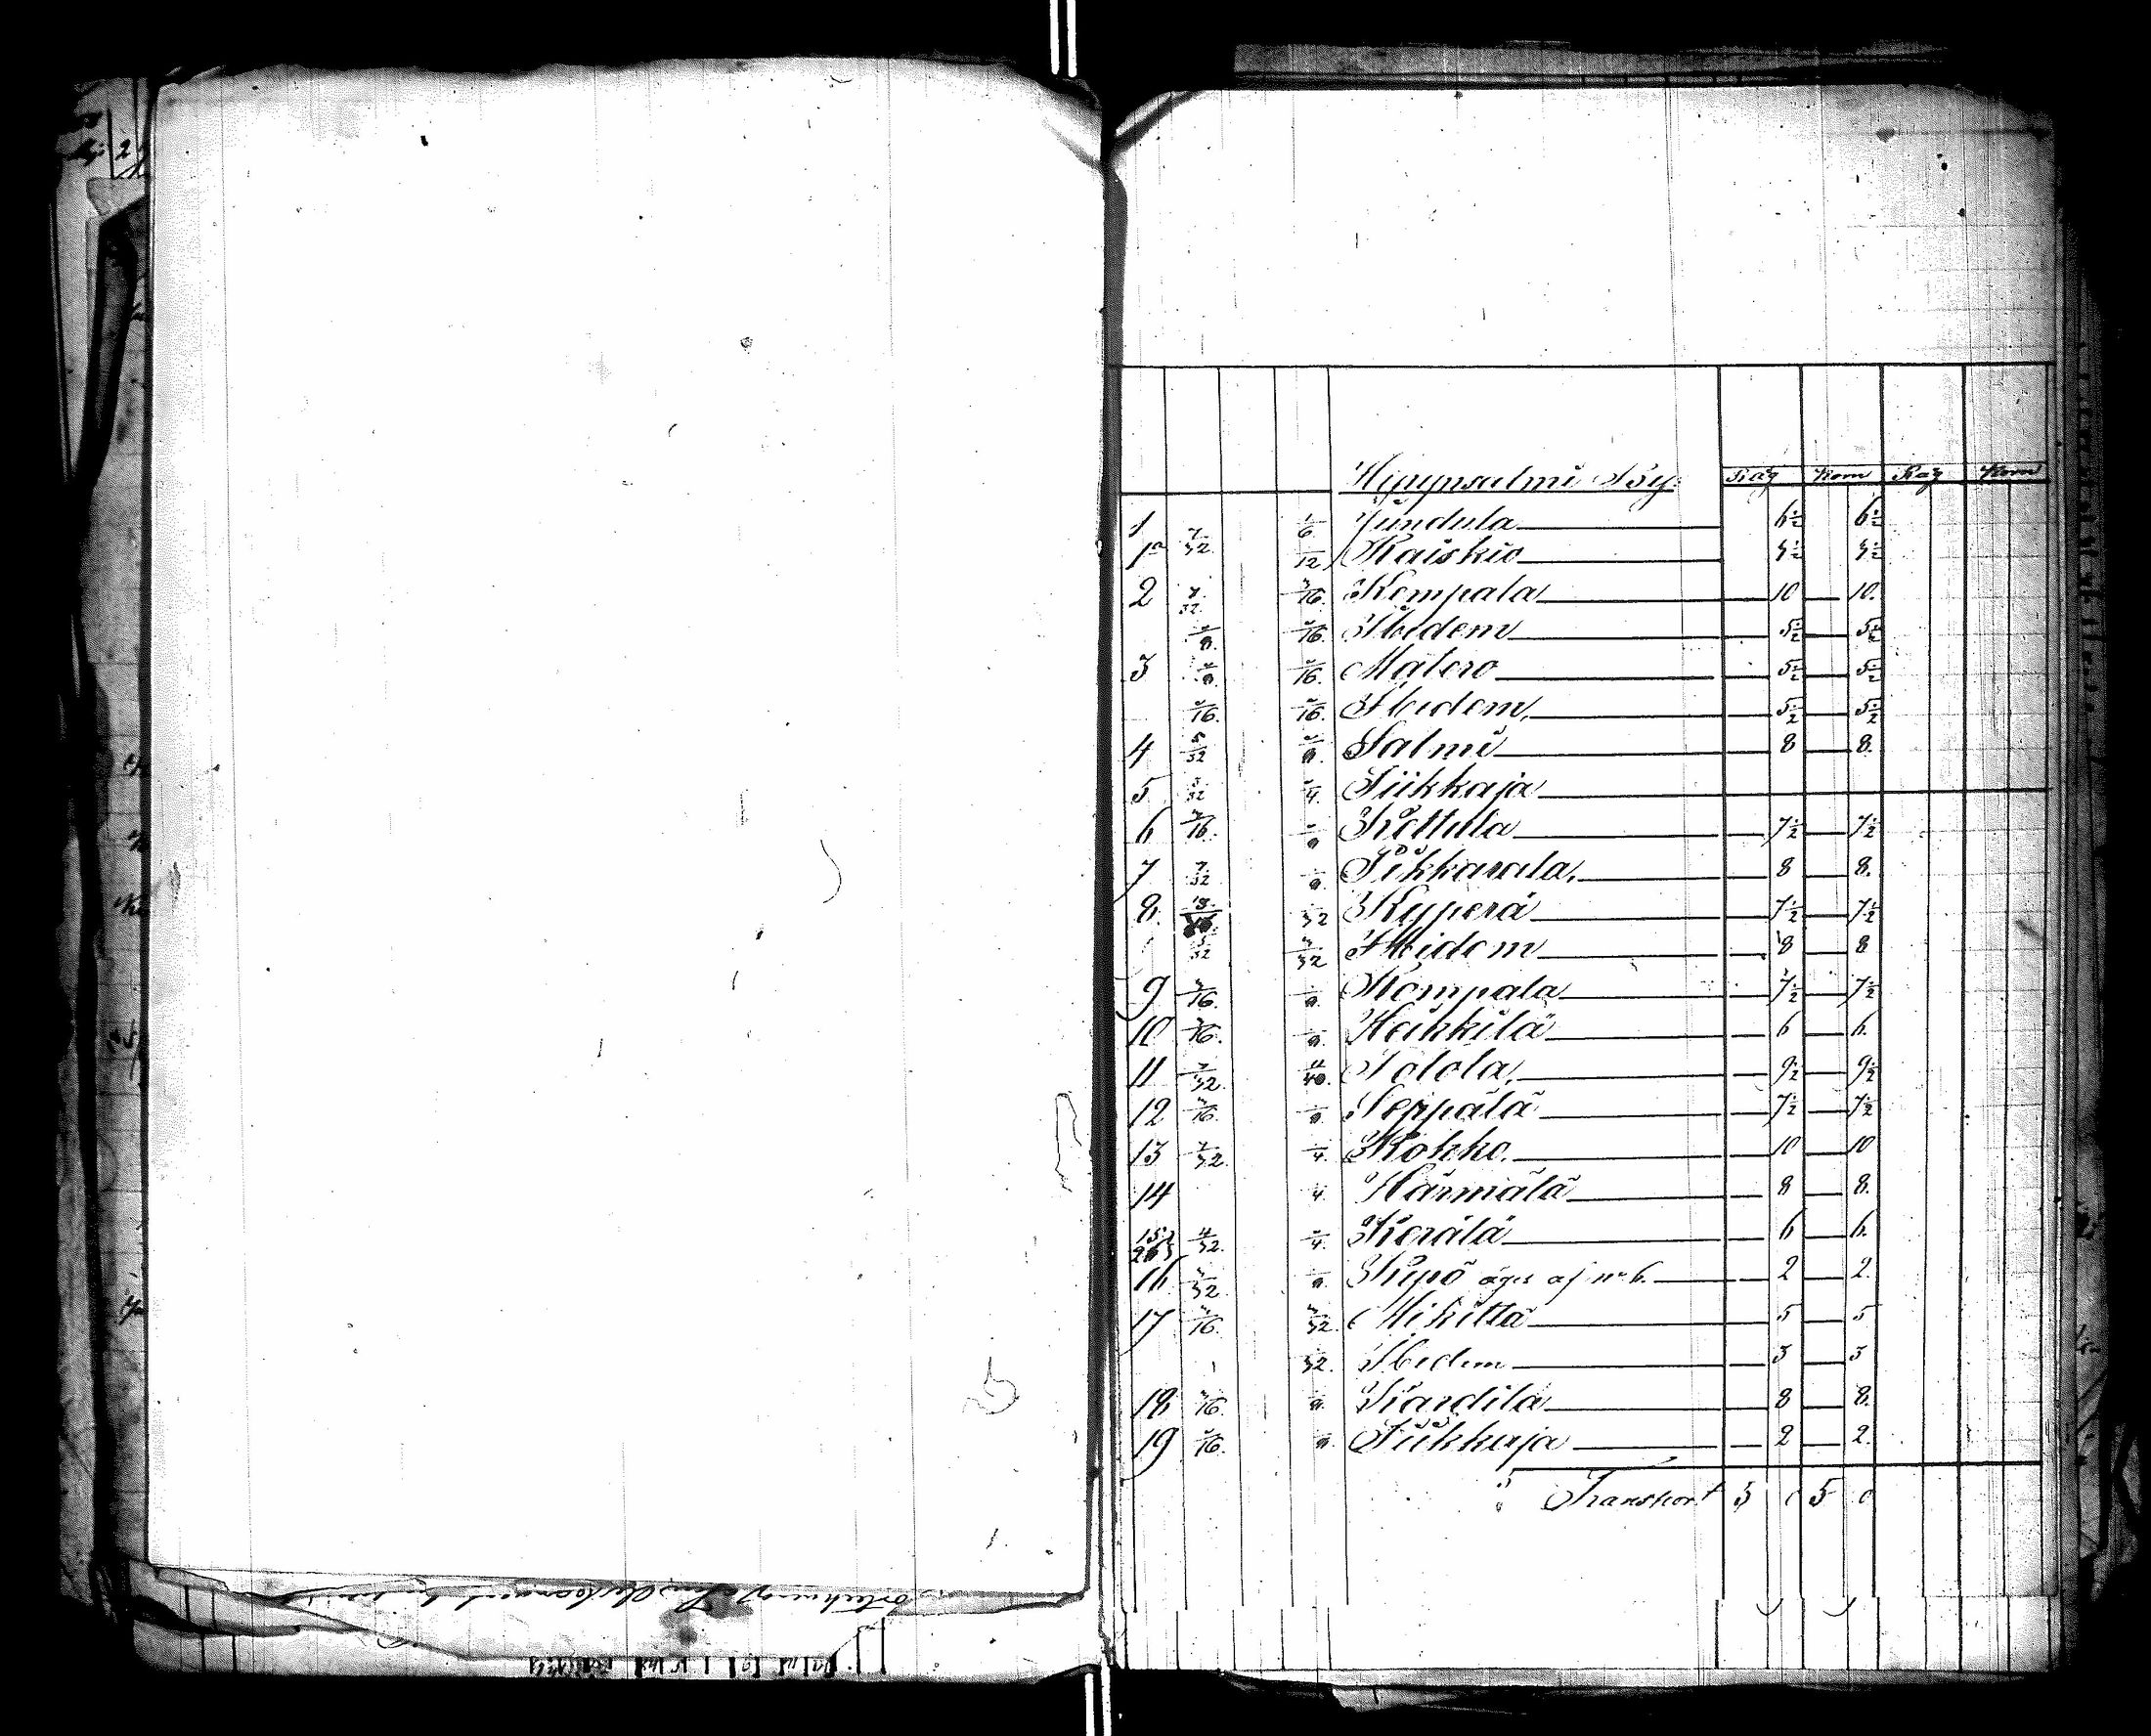 Hypypsalmi By. Råg Korn Råg Korn
1 1/6 Jundula 6½ 6½
1a 7/32 1/12 Kaiskio 3½ 3½
2 7/32 3/16 Kempala 10 10.
1/8 1/16 Ibidem 5½ 5½
3 1/8 1/16 Matero 5½ 5½
1/16 1/16 Ibidem 5½ 5½
4 5/32 1/8 Salmi 8 8.
5 3/32 1/4 Siikkaja
6 3/16 1/8 Kottila 7½ 7½
7 7/32 1/8 Sikkavala 8 8.
8. 1/32 Kyperä 7½ 7½
5/32 3/32 Ibidem 8 8
9 3/16 1/8 Kompala 7½ 7½
10 3/16 1/8 Heikkilä 6 6.
11 7/32 11/40 Tolola 9½ 9½
12 3/16 1/8 Seppälä 7½ 7½
13 7/32 1/4 Kokko 10 10
14 1/4 Härmälä 8 8.
15 26 11/32 1/4 Kerälä 6 6.
16 3/32 1/8 äges af No 6. 2 2.
17 3/16 3/32 Mikittä 5 5
1/32 Ibidem 3 3
18 3/16 1/8 Kardila 8 8.
19 1/16 1/8 Siikkaja 2 2.
Transport 5 0 5 0